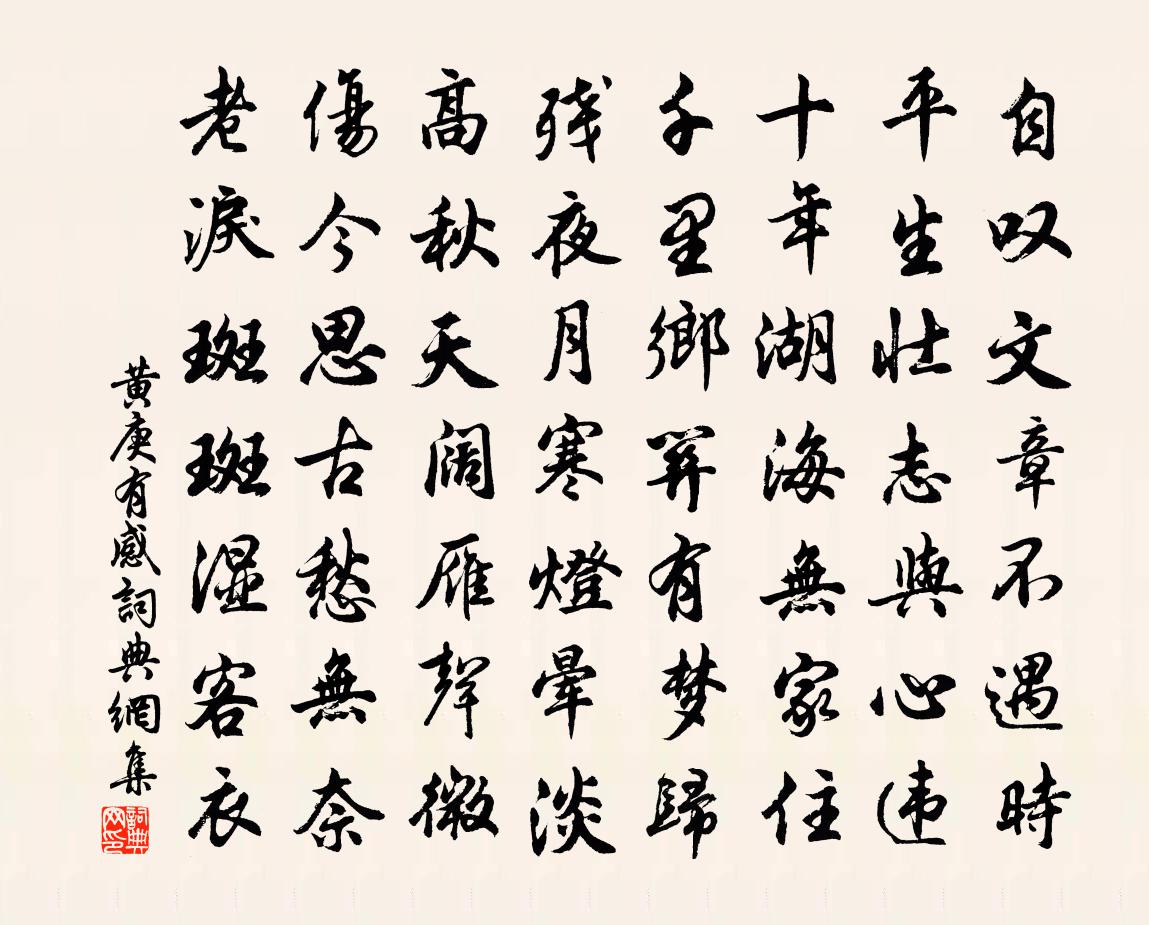 自叹文章不遇時
平生壮志與心违
十年湖海無家住
千里鄉關有梦歸
残夜月寒燈暈淡
髙秋天阔雁聲微
傷今思古愁無奈
老淚斑斑湿客衣
黄庚有感詞典網集
詞典网印